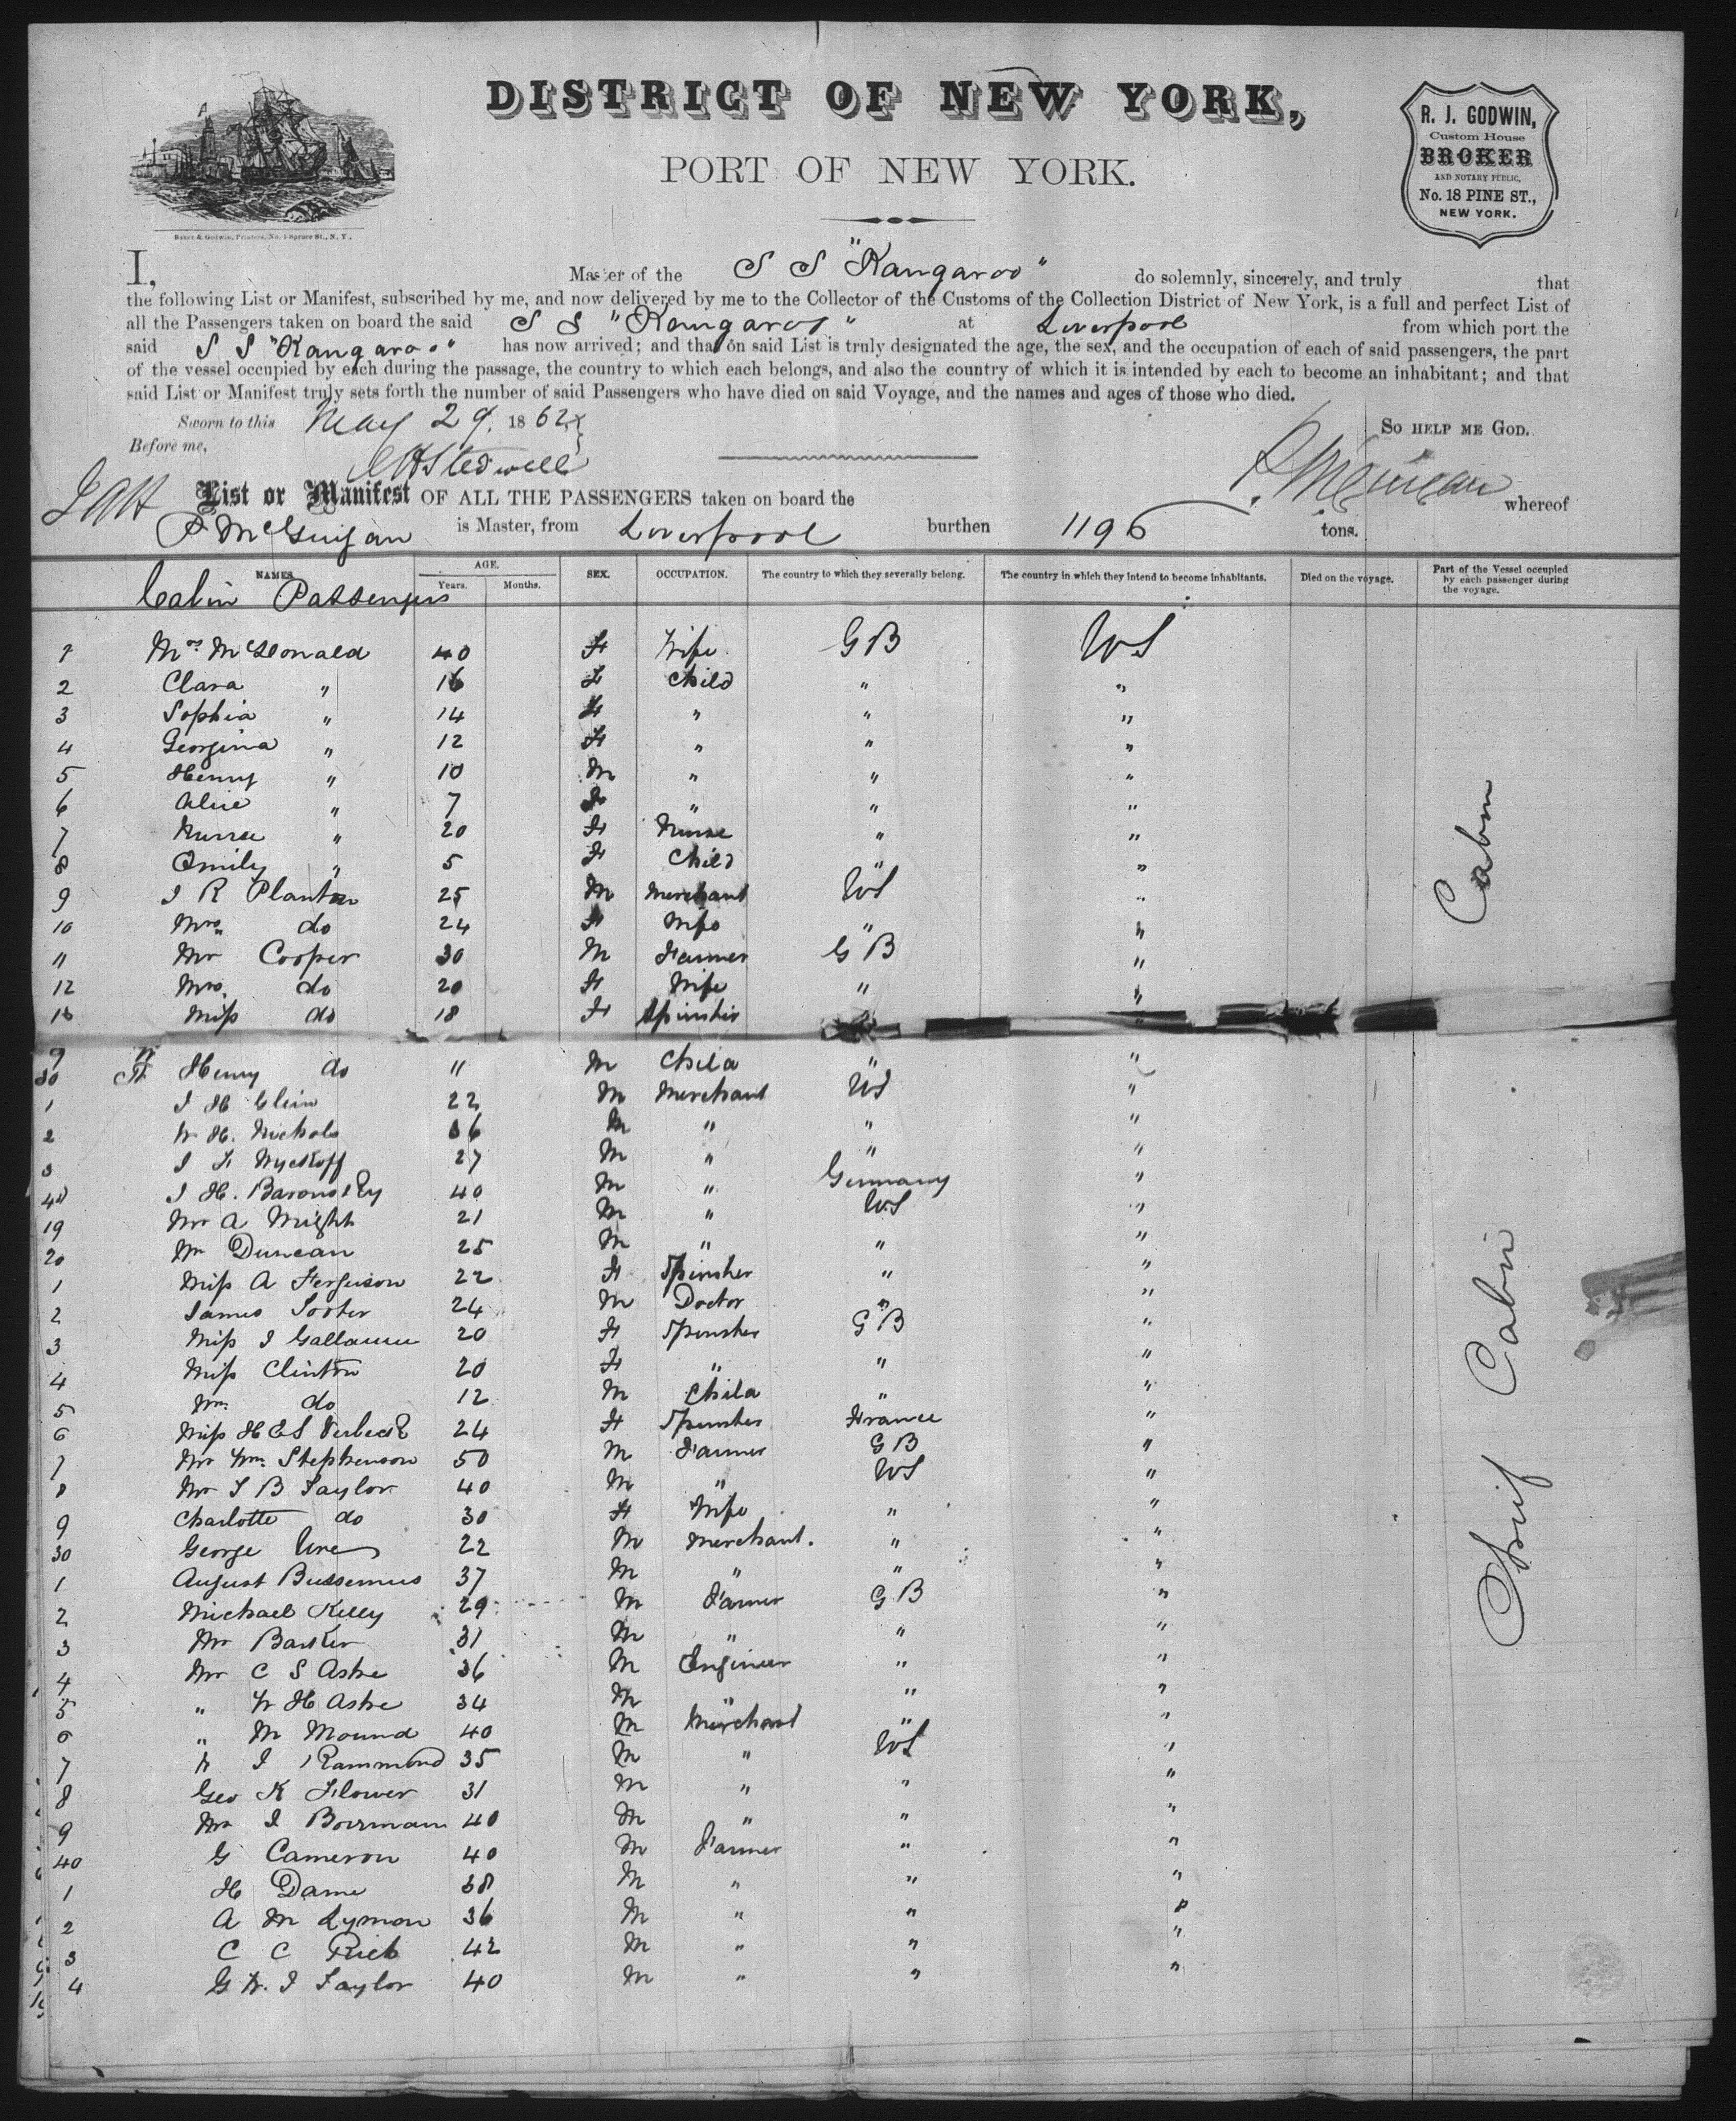 DISTRICT OF NEW YORK,
PORT OF NEW YORK.
Baker & Godwin, Printers, No. 1 Spruce St., N. Y.
R. J. GODWIN,
Custom House
BROKER
AND NOTARY PUBLIC,
No. 18 PINE ST.,
NEW YORK.
I, Master of the S S "Kangaroo" do solemnly, sincerely, and truly that
the following List or Manifest, subscribed by me, and now delivered by me to the Collector of the Customs of the Collection District of New York, is a full and perfect List of
all the Passengers taken on board the said S S "Kangaroo" at Liverpool from which port the
said S S "Kangaroo" has now arrived; and that on said List is truly designated the age, the sex, and the occupation of each of said passengers, the part
of the vessel occupied by each during the passage, the country to which each belongs, and also the country of which it is intended by each to become an inhabitant; and that
said List or Manifest truly sets forth the number of said Passengers who have died on said Voyage, and the names and ages of those who died.
Sworn to this May 29. 1862 SO HELP ME GOD.
Before me,
List or Manifest OF ALL THE PASSENGERS taken on board the whereof
P McGuigan is Master, from Liverpool burthen 1196 tons.
NAMES. AGE. Years. Months. SEX. OCCUPATION. The country to which they severally belong. The country in which they intend to become inhabitants. Died on the voyage. Part of the Vessel occupied by each passenger during the voyage.
Cabin Passengers
1 Mrs McDonald 40 F Wife G B US
2 Clara " 16 F Child " "
3 Sophia " 14 F " " "
4 Georgina " 12 F " " "
5 Henry " 10 M " " "
6 Alice " 7 F " " "
7 Nurse " 20 F Nurse " "
8 Emily " 5 F Child " "
9 J R Planten 25 M Merchant US "
10 Mrs do 24 F Wife " "
11 Mr Cooper 30 M Farmer G B "
12 Mrs. do 20 F Wife " "
13 Miss do 18 F Spinster "
Henry do " M Child " "
1 J H Glein 22 M Merchant US "
2 W H. Nichols 36 M " " "
3 J F Wyckoff 27 M " " "
J H. 40 M " Germany "
19 Mr A Wright 21 M " US "
20 Mr Duncan 25 M " " "
1 Miss A Ferguson 22 F Spinster " "
2 James 24 M Doctor " "
3 Miss J 20 F Spinster G B "
4 Miss Clinton 20 F " " "
5 Wm. do 12 M Child " "
6 Miss H E S 24 F Spinster France "
7 Mr Wm. Stephenson 50 M Farmer G B "
8 Mr J B Taylor 40 M " US "
9 Charlotte do 30 F Wife " "
30 George Ure 22 M Merchant. " "
1 August Bussemus 37 M " " "
2 Michael Kelly 29 M Farmer G B "
3 Mr Barker 31 M " " "
4 Mr C S Ashe 36 M Engineer " "
5 " W H Ashe 34 M " " "
6 " M Mound 40 M Merchant " "
7 J Rammond 35 M " US "
8 Geo K Flower 31 M " " "
9 Mr J Borrman 40 M " " "
40 G Cameron 40 M Farmer " "
1 H Dame 38 M " " "
2 A M Lyman 36 M " " "
3 C C Rich 42 M " " "
4 G W. J Taylor 40 M " " "
Cabin
Chief Cabin